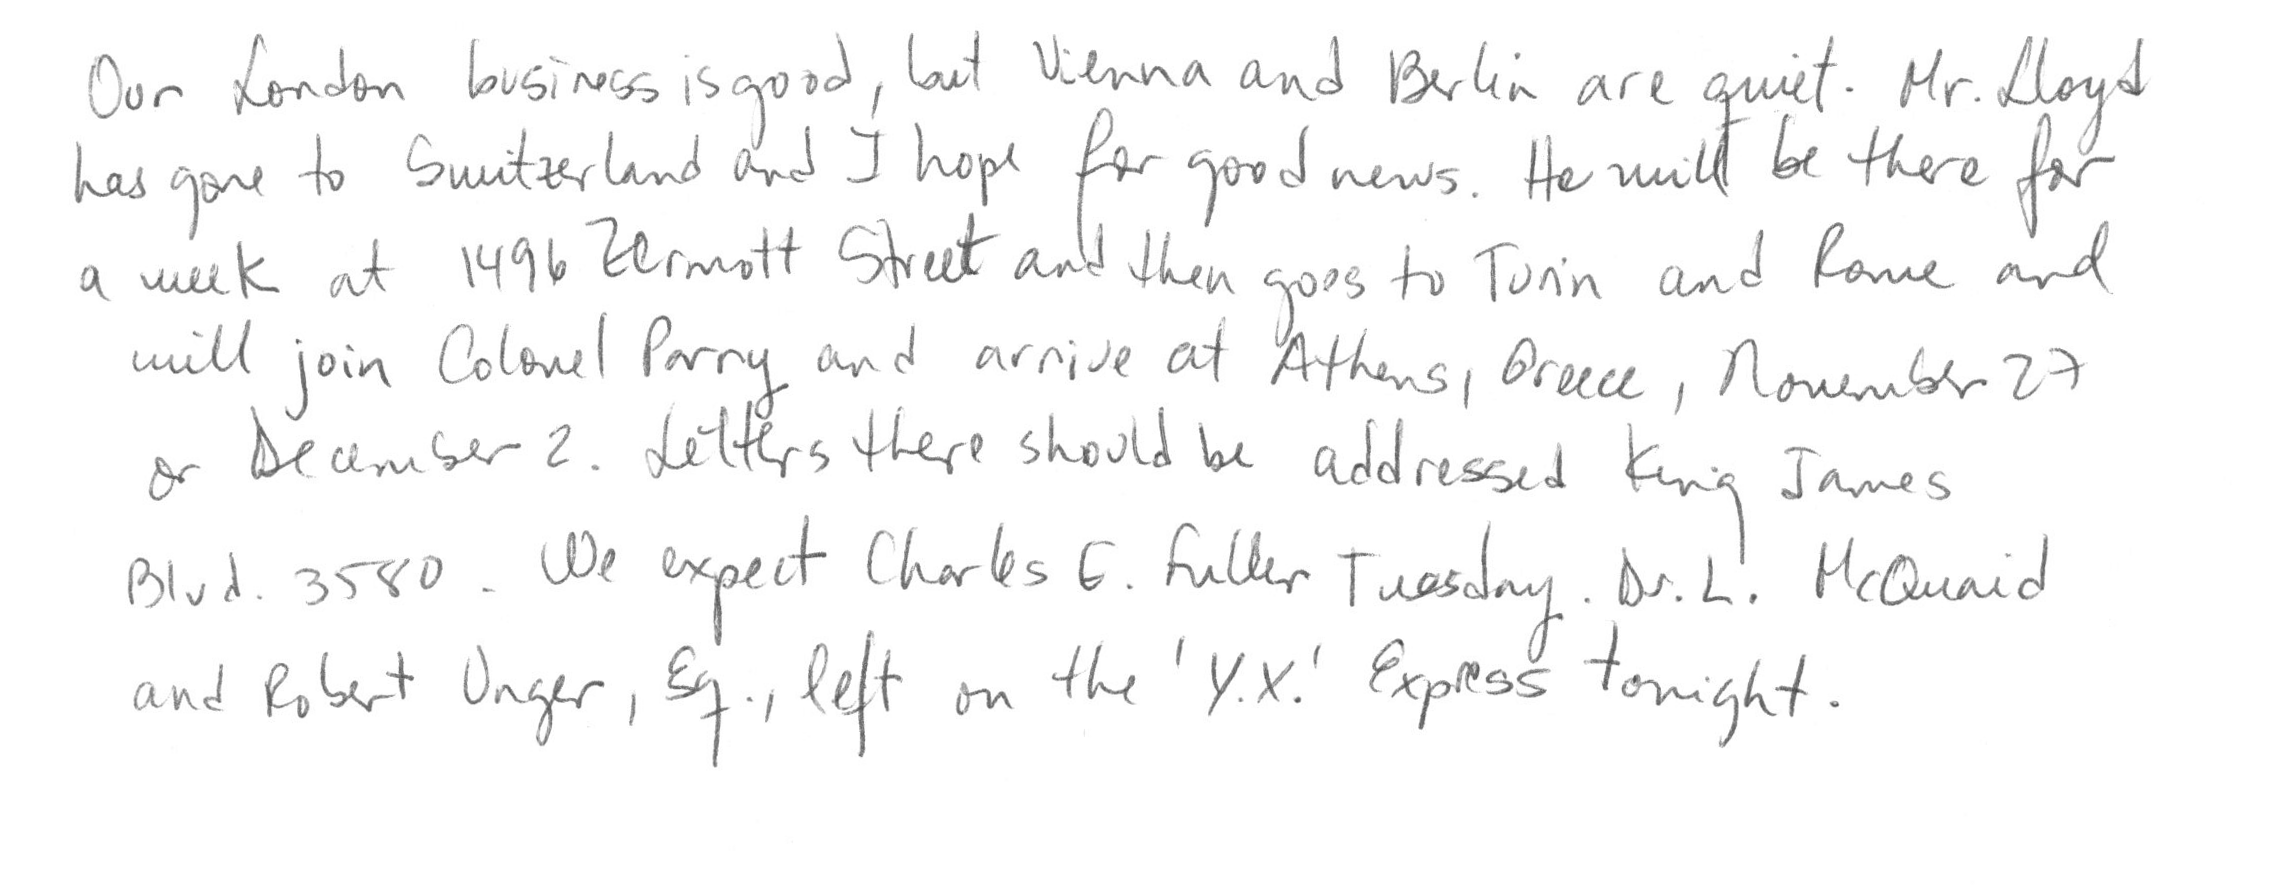 Our London business is good, but Vienna and Berlin are quiet. Mr. Lloyd
has gone to Switzerland and I hope for good news. He will be there for
a week at 1496 Zermott Street and then goes to Turin and Rome and
will join Colonel Parry and arrive at Athens, Greece, November 27
or December 2. Letters there should be addressed King James
Blvd. 3580. We expect Charles E. Fuller Tuesday. Dr. L. McQuaid
and Robert Unger, Esq., left on the 'Y.X.' Express tonight.